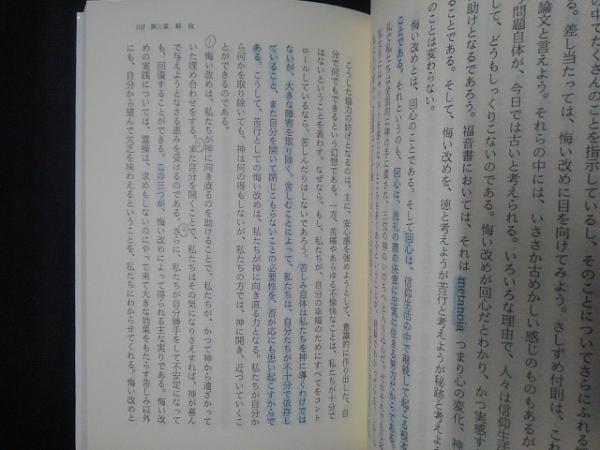 の中でたくさんのことを指示しているし、そのことについてさらにふれる
る。差し当たっては、悔い改めに目を向けてみよう。さしずめ付則は、これ
論文と言えよう。それらの中には、いささか古めかしい感じのものもあるが
問題自体が、今日では古いと考えられる。いろいろな理由で、人々は信仰生活
して、どうもしっくりこないのである。悔い改めが回心だとわかり、かつ考慮す
助けとなるであろう。福音書においては、それは metanoia つまり心の変化、神
ることである。そして、悔い改めを、徳と考えようが苦行と考えようが秘跡と考えよう
のことは変わらない。
悔い改めとは、回心のことである。そして回心は、信仰生活の中で継続して起こる
ことである。それというのも、回心は、洗礼の際の決意に忠実に生きる努力だからである。
礼で私たちは全面的に神の手に渡され、三位の神のいのちへと
108 第三章
こうした協力の妨げとなるのは、主に、安心感を強めようとして、意識的に作り出した、自
分で何でもできるという幻想である。一方、苦痛やあらゆる不愉快なことは、私たちが十分で
はないということを表わす。なぜなら、もし、私たちが、自分の幸福のためにすべてをコント
ロールしているなら、苦しんだりはしないであろう。苦しみ自体は私たちを神に導くわけでは
ないが、大きな障害を取り除く。苦しむことによって、私たちは、自分たちが不十分で依存し
ていること、また自分を開いて閉じこもらないことの必要性を、否が応にも思い起こすからで
ある。こうして、苦行としての悔い改めは、私たちが神に向き直る力となる。私たちが自分か
ら何かを取り除いても、神は何の得もしないが、私たちの方では、神に開き、近づいていくこ
とができるのである。
悔い改めは、私たちが神に向き直るのを助けることで、私たちが、かつて神から遠ざかって
いた埋め合わせをする。また自分を開くことで、私たちはその気になりさえすれば、神が喜ん
で与えようとなさる恵みを受けるのである。さらに、私たちが自分勝手をして不安定になって
も、回復することができる。この三つが、悔い改めによって得られる主な実りである。悔い改
めの実践については、霊操は、求めもしないのにやって来て大きな効果をもたらす苦しみ以外
にも、自分から望んで欠乏を味わえるということを、私たちにわからせてくれる。悔い改めと